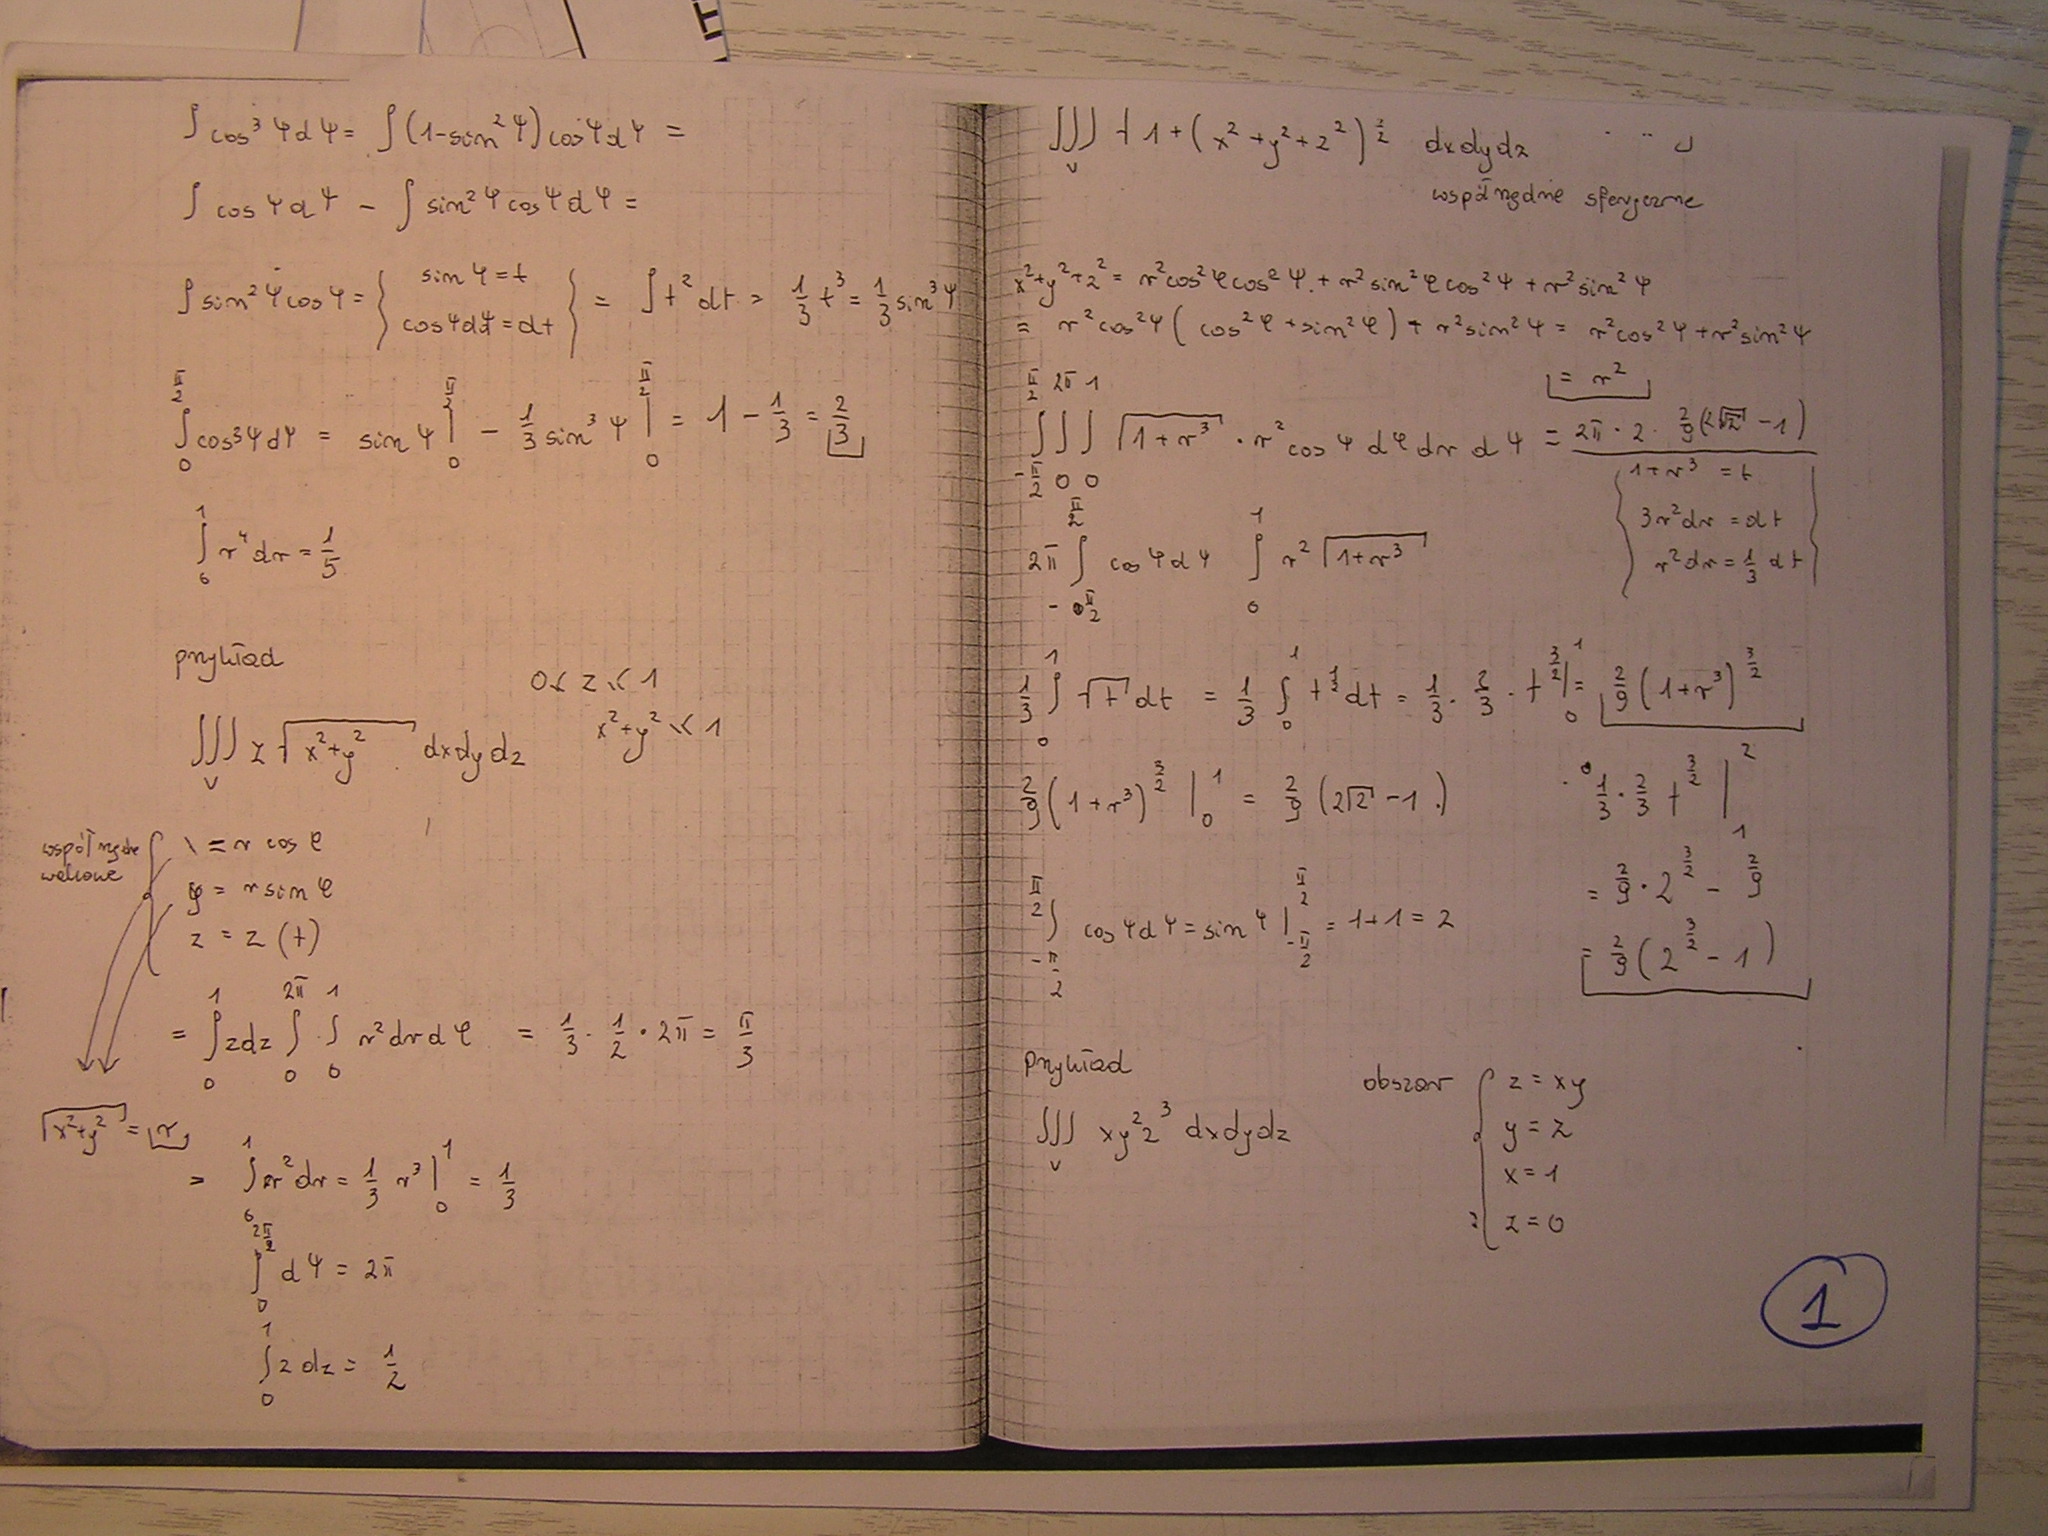 ∫ cos³ψdψ = ∫(1-sin²ψ)cosψdψ =
∫ cosψdψ - ∫ sin²ψcosψdψ =
∫ sin²ψcosψ = { sinψ=t cosψdψ=dt } = ∫t²dt = 1/3 t³ = 1/3 sin³ψ
∫₀^{π/2} cos³ψdψ = sinψ |₀^{π/2} - 1/3 sin³ψ |₀^{π/2} = 1 - 1/3 = 2/3
∫₀¹ r⁴dr = 1/5
przykład
0 ≤ z ≤ 1
x²+y² ≤ 1
∫∫∫_V z √(x²+y²) dxdydz
współrzędne
walcowe
= r cosφ
y = r sinφ
z = z (t)
= ∫₀¹ zdz ∫₀^{2π} ∫₀¹ r²drdφ = 1/3 · 1/2 · 2π = π/3
√(x²+y²) = r
= ∫₀¹ r²dr = 1/3 r³ |₀¹ = 1/3
dψ = 2π
∫₀¹ zdz = 1/2
∫∫∫_V √1+(x²+y²+z²)^{3/2} dxdydz
współrzędne sferyczne
x²+y²+z² = r²cos²φcos²ψ + r²sin²φcos²ψ + r²sin²ψ
= r²cos²ψ(cos²φ+sin²φ) + r²sin²ψ = r²cos²ψ+r²sin²ψ
= r²
∫_{-π/2}^{π/2} ∫₀^{2π} ∫₀¹ √(1+r³) · r²cosψdφdrdψ = 2π · 2 · 2/9(2√2 -1)
{ 1+r³ = t
3r²dr = dt
r²dr = 1/3 dt }
2π ∫_{-π/2}^{π/2} cosψdψ ∫₀¹ r² √(1+r³)
1/3 ∫₀¹ √t dt = 1/3 ∫₀¹ t^{1/2}dt = 1/3 · 2/3 · t^{3/2} |₀¹ = 2/9 (1+r³)^{3/2}
2/9 (1+r³)^{3/2} |₀¹ = 2/9 (2√2 -1)
1/3 · 2/3 t^{3/2} |₁²
= 2/9 · 2^{3/2} - 2/9
= 2/9 (2^{3/2} - 1)
∫_{-π/2}^{π/2} cosψdψ = sinψ |_{-π/2}^{π/2} = 1+1 = 2
Przykład
∫∫∫_V xy²z³ dxdydz
obszar { z = xy
y = z
x = 1
z = 0
1